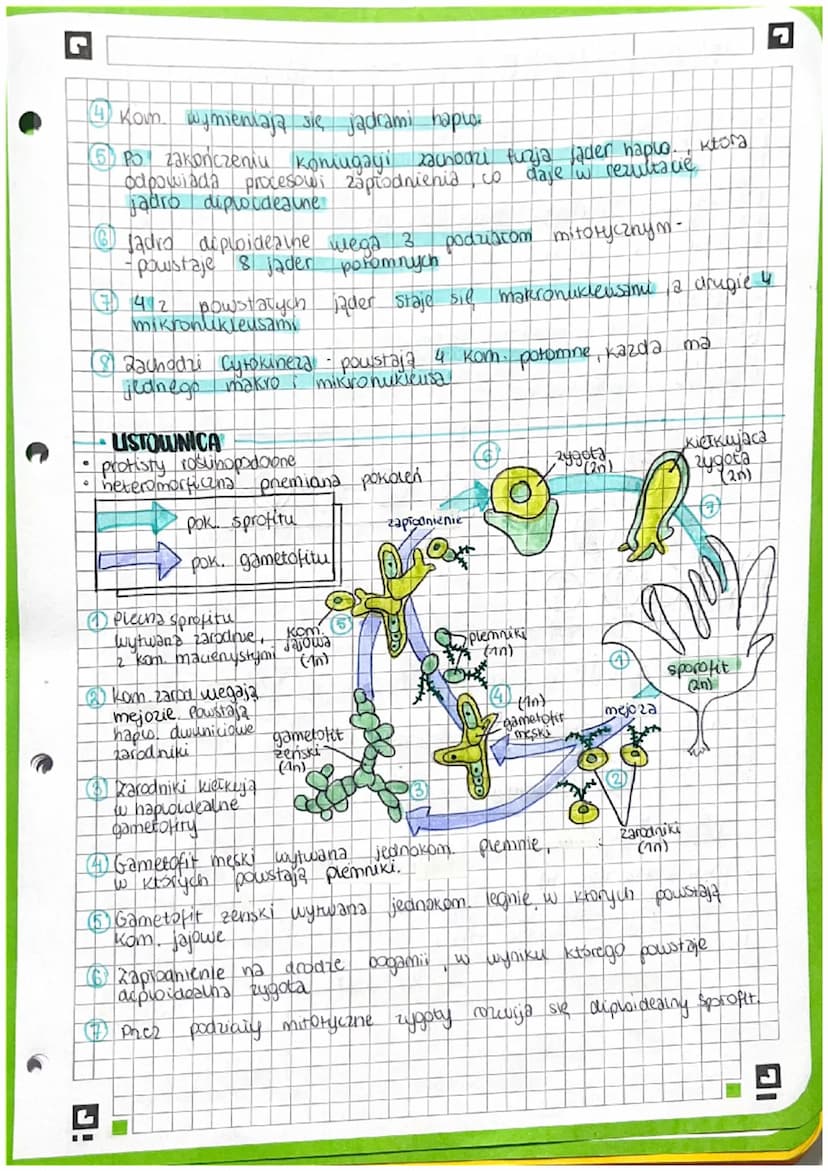 ④ Kom. wymieniają się jądrami haplo.
⑤ Po zakończeniu koniugacji zachodzi fuzja jąder haplo., która
odpowiada procesowi zapłodnienia, co daje w rezultacie
jądro diploidealne
⑥ Jądro diploidealne ulega 3 podziałom mitotycznym -
- powstaje 8 jąder potomnych
⑦ 4 z powstałych jąder staje się makronukleusami, a drugie 4
mikronukleusami
⑧ Zachodzi cytokineza - powstają 4 kom. potomne, każda ma
jednego makro i mikronukleusa
• LISTOWNICA
• protisty roślinopodobne
• heteromorficzna przemiana pokoleń
pok. sprofitu
pok. gametofitu
zapłodnienie
⑥
zygota
(2n)
kiełkująca
zygota
(2n)
⑦
① Plecha sprofitu
wytwarza zarodnie,
z kom. macierzystymi
kom.
jajowa
(1n)
⑤
plemniki
(1n)
①
sporofit
(2n)
② Kom. zarod. ulegają
mejozie. Powstają
haplo. dwuwiciowe
zarodniki
gametofit
żeński
(1n)
④
(1n)
gametofit
męski
mejoza
②
③
zarodniki
(1n)
③ Zarodniki kiełkują
w haploidealne
gametofity
④ Gametofit męski wytwarza jednokom. plemnie,
w których powstają plemniki.
⑤ Gametofit żeński wytwarza jednokom. lęgnie, w których powstają
kom. jajowe
⑥ Zapłodnienie na drodze oogamii, w wyniku którego powstaje
diploidealna zygota
⑦ Przez podziały mitotyczne zygoty rozwija się diploidealny sprofit.